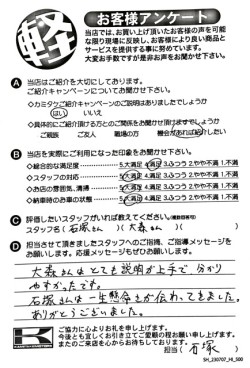 軽
お客様アンケート
当店では、お買い上げ頂いたお客様の声を可能
な限り現場に反映し、お客様により良い商品と
サービスを提供する事に努めています。
大変お手数ですが是非お声をお聞かせ下さい。
A 当店はご紹介を大切にしております。
ご紹介キャンペーンについてお聞かせ下さい。
◇カミタケご紹介キャンペーンのご説明はありましたでしょうか
はい いいえ
◇具体的にご紹介頂ける方とのご関係をお聞かせ頂けますでしょうか
ご親族 ご友人 職場の方 機会があれば紹介したい
B 当店を実際にご利用になった印象をお聞かせ下さい。
◇総合的な満足度 5.大満足 4.満足 3.ふつう 2.やや不満 1.不満
◇スタッフの対応 5.大満足 4.満足 3.ふつう 2.やや不満 1.不満
◇お店の雰囲気、清掃 5.大満足 4.満足 3.ふつう 2.やや不満 1.不満
◇納車時のお車の状態 5.大満足 4.満足 3.ふつう 2.やや不満 1.不満
C 評価したいスタッフがいれば教えてください。(複数回答可)
スタッフ名(石塚さん)(大森さん)
D 担当させて頂きましたスタッフへのご指摘、ご指導メッセージを
お願いします。応援メッセージもぜひお願いします。
大森さんはとても説明が上手で 分かり
やすかったです。
石塚さんは一生懸命さが伝わってきました。
ありがとうございました。
ご協力に心よりお礼を申し上げます。
今後とも宜しくお引き立てご愛顧の程お願い申し上げます。
またのご来店を心よりお待ちしております。
担当(石塚)
SH_230707_HI_500